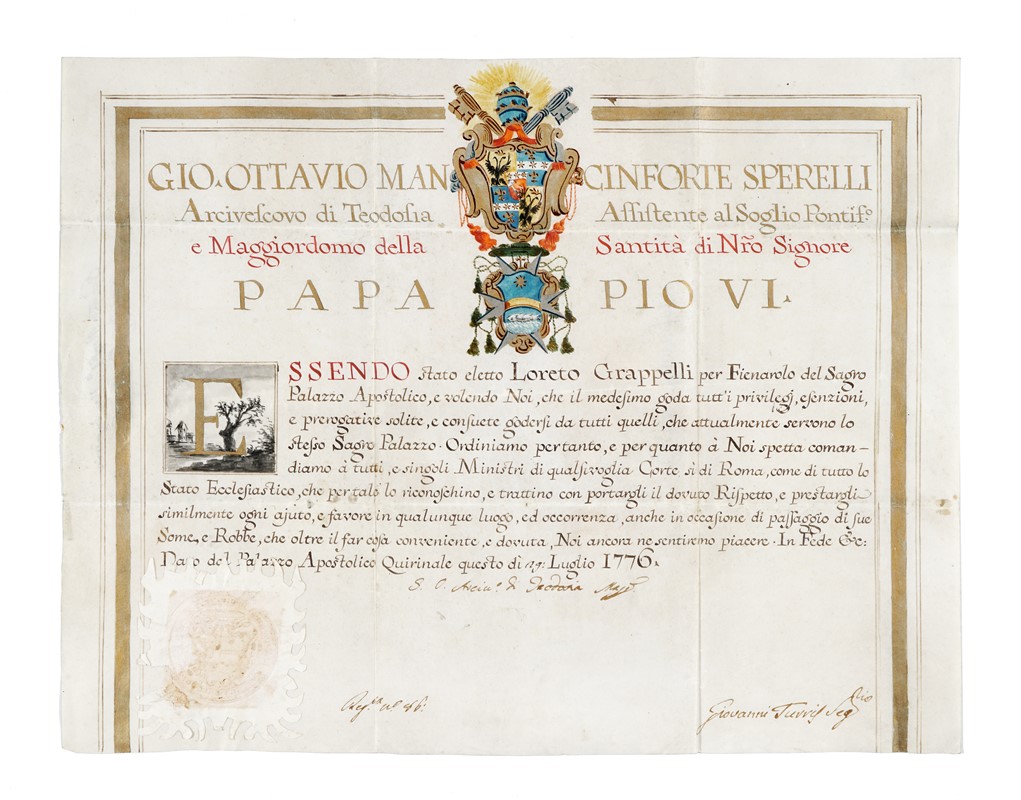 GIO. OTTAVIO MANCINFORTE SPERELLI
Arcivescovo di Teodosia Assistente al Soglio Pontif.º
e Maggiordomo della Santità di Nr̃o Signore
PAPA PIO VI.
ESSENDO stato eletto Loreto Grappelli per Fienarolo del Sagro
Palazzo Apostolico, e volendo Noi, che il medesimo goda tutt'i privilegj, esenzioni,
e prerogative solite, e consuete godersi da tutti quelli, che attualmente servono lo
stesso Sagro Palazzo. Ordiniamo pertanto, e per quanto à Noi spetta coman-
diamo à tutti, e singoli Ministri di qualsivoglia Corte sì di Roma, come di tutto lo
Stato Ecclesiastico, che per tale lo riconoschino, e trattino con portargli il dovuto Rispetto, e prestargli
similmente ogni ajuto, e favore in qualunque luogo, ed occorrenza, anche in occasione di passaggio di sue
Some, e Robbe, che oltre il far cosa conveniente, e dovuta, Noi ancora ne sentiremo piacere. In Fede &c:
Dato dal Palazzo Apostolico Quirinale questo dì 29: Luglio 1776.
di Teodosia
Giovanni Seg